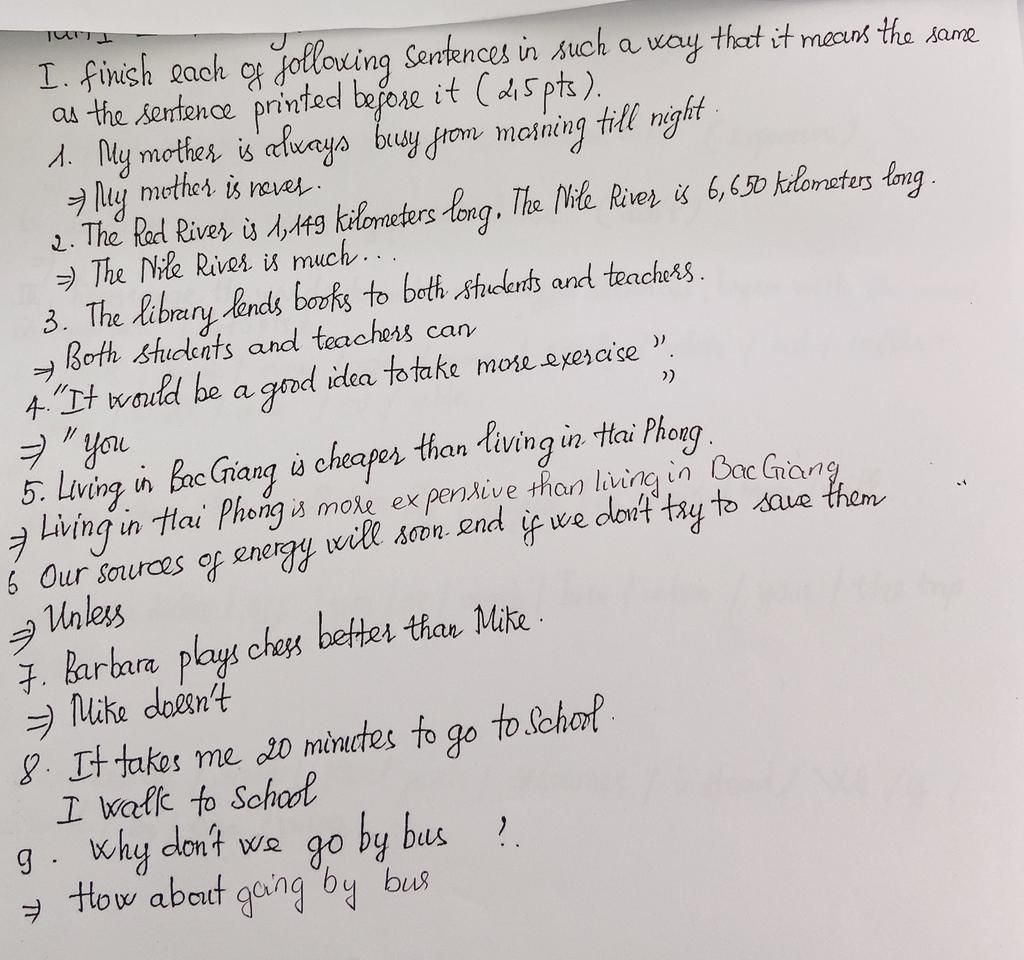 I. finish each of following sentences in such a way that it means the same
as the sentence printed before it (2,5 pts).
1. My mother is always busy from morning till night.
⇒ My mother is never.
2. The Red River is 1,149 kilometers long. The Nile River is 6,650 kilometers long.
⇒ The Nile River is much...
3. The library lends books to both students and teachers.
⇒ Both students and teachers can
4. "It would be a good idea to take more exercise".
⇒ "You "
5. Living in Bac Giang is cheaper than living in Hai Phong.
⇒ Living in Hai Phong is more expensive than living in Bac Giang
6 Our sources of energy will soon end if we don't try to save them
⇒ Unless
7. Barbara plays chess better than Mike.
⇒ Mike doesn't
8. It takes me 20 minutes to go to School.
I walk to School
9. Why don't we go by bus ?.
⇒ How about going by bus